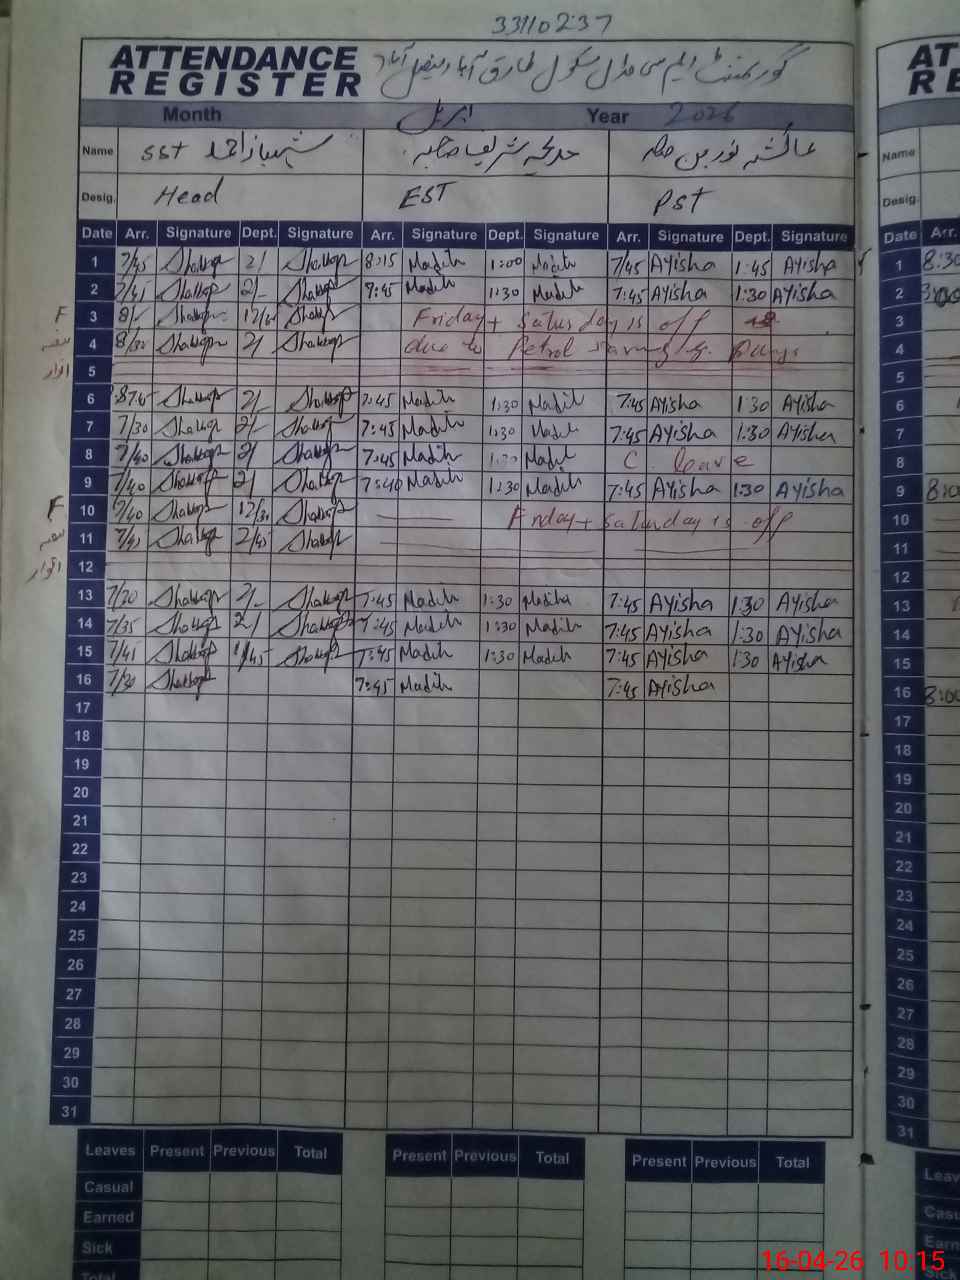 33110237
ATTENDANCE REGISTER گورنمنٹ ایم سی مڈل سکول طارق آباد فیصل آباد
Month اپریل Year 2026
Name SST شہباز احمد خدیجہ شریف صاحبہ عائشہ نورین صاحبہ
Desig. Head EST PST
Date Arr. Signature Dept. Signature Arr. Signature Dept. Signature Arr. Signature Dept. Signature
1 7/45 2/ 8:15 Madih 1:00 Madih 7/45 Ayisha 1:45 Ayisha
2 7/45 2/- 7:45 Madih 1:30 Madih 7:45 Ayisha 1:30 Ayisha
F 3 8/- 12/30 Friday + Saturday is off
ہفتہ 4 8/30 2/ due to Petrol saving
اتوار 5
6 2/ 7:45 Madih 1:30 Madih 7:45 Ayisha 1:30 Ayisha
7 7/30 2/- 7:45 Madih 1:30 Madih 7:45 Ayisha 1:30 Ayisha
8 7/40 2/ 7:45 Madih 1:30 Madih C. leave
9 7/40 2/ 7:40 Madih 1:30 Madih 7:45 Ayisha 1:30 Ayisha
F 10 7/40 12/30 Friday + Saturday is off
ہفتہ 11 7/45 2/45
اتوار 12
13 7/20 2/- 7:45 Madih 1:30 Madiha 7:45 Ayisha 1:30 Ayisha
14 7/35 2/ 7:45 Madih 1:30 Madih 7:45 Ayisha 1:30 Ayisha
15 7/41 1/45 7:45 Madih 1:30 Madih 7:45 Ayisha 1:30 Ayisha
16 7/30 7:45 Madih 7:45 Ayisha
17
18
19
20
21
22
23
24
25
26
27
28
29
30
31
Leaves Present Previous Total Present Previous Total Present Previous Total
Casual
Earned
Sick
Total
AT
RE
Name
Desig.
Date Arr.
1 8:30
2
3
4
5
6
7
8
9 8:0
10
11
12
13
14
15
16 8:00
17
18
19
20
21
22
23
24
25
26
27
28
29
30
31
Leav
Casu
Earn
Sick
16-04-26 10:15